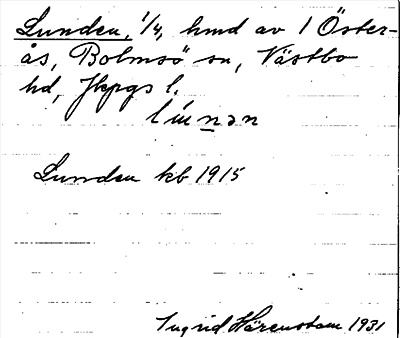 Lunden, 1/4, hmd av 1 Öster-
ås, Bolmsö sn, Västbo
hd, Jkpgs l.
Lunden kb 1915
Ingrid Härenstam 1931